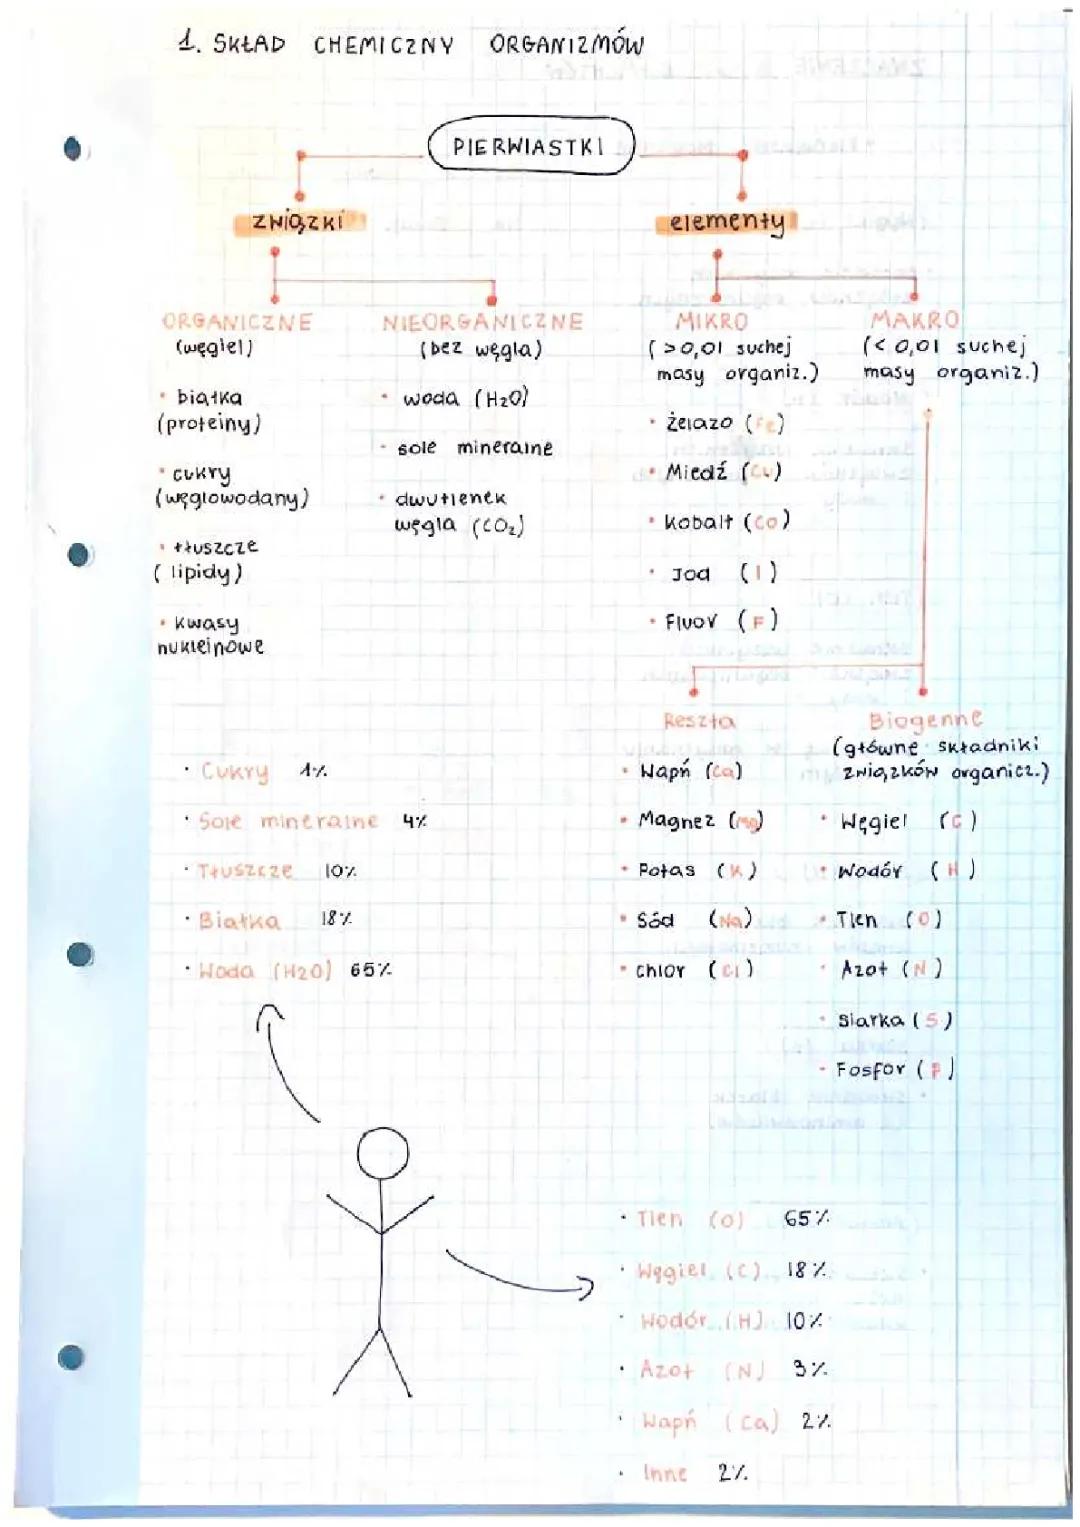 1. SKŁAD CHEMICZNY ORGANIZMÓW
PIERWIASTKI
związki
elementy
ORGANICZNE
(węgiel)
• białka
(proteiny)
• cukry
(węglowodany)
• tłuszcze
(lipidy)
• kwasy
nukleinowe
NIEORGANICZNE
(bez węgla)
• woda (H2O)
• sole mineralne
• dwutlenek
węgla (CO2)
MIKRO
(>0,01 suchej
masy organiz.)
• Żelazo (Fe)
• Miedź (Cu)
• Kobalt (Co)
• Jod (I)
• Fluor (F)
MAKRO
(<0,01 suchej
masy organiz.)
Reszta
• Wapń (Ca)
• Magnez (Mg)
• Potas (K)
• Sód (Na)
• Chlor (Cl)
Biogenne
(główne składniki
związków organicz.)
• Węgiel (C)
• Wodór (H)
• Tlen (O)
• Azot (N)
• Siarka (S)
• Fosfor (P)
• Cukry 1%
• Sole mineralne 4%
• Tłuszcze 10%
• Białka 18%
• Woda (H2O) 65%
• Tlen (O) 65%
• Węgiel (C) 18%
• Wodór (H) 10%
• Azot (N) 3%
• Wapń (Ca) 2%
• Inne 2%